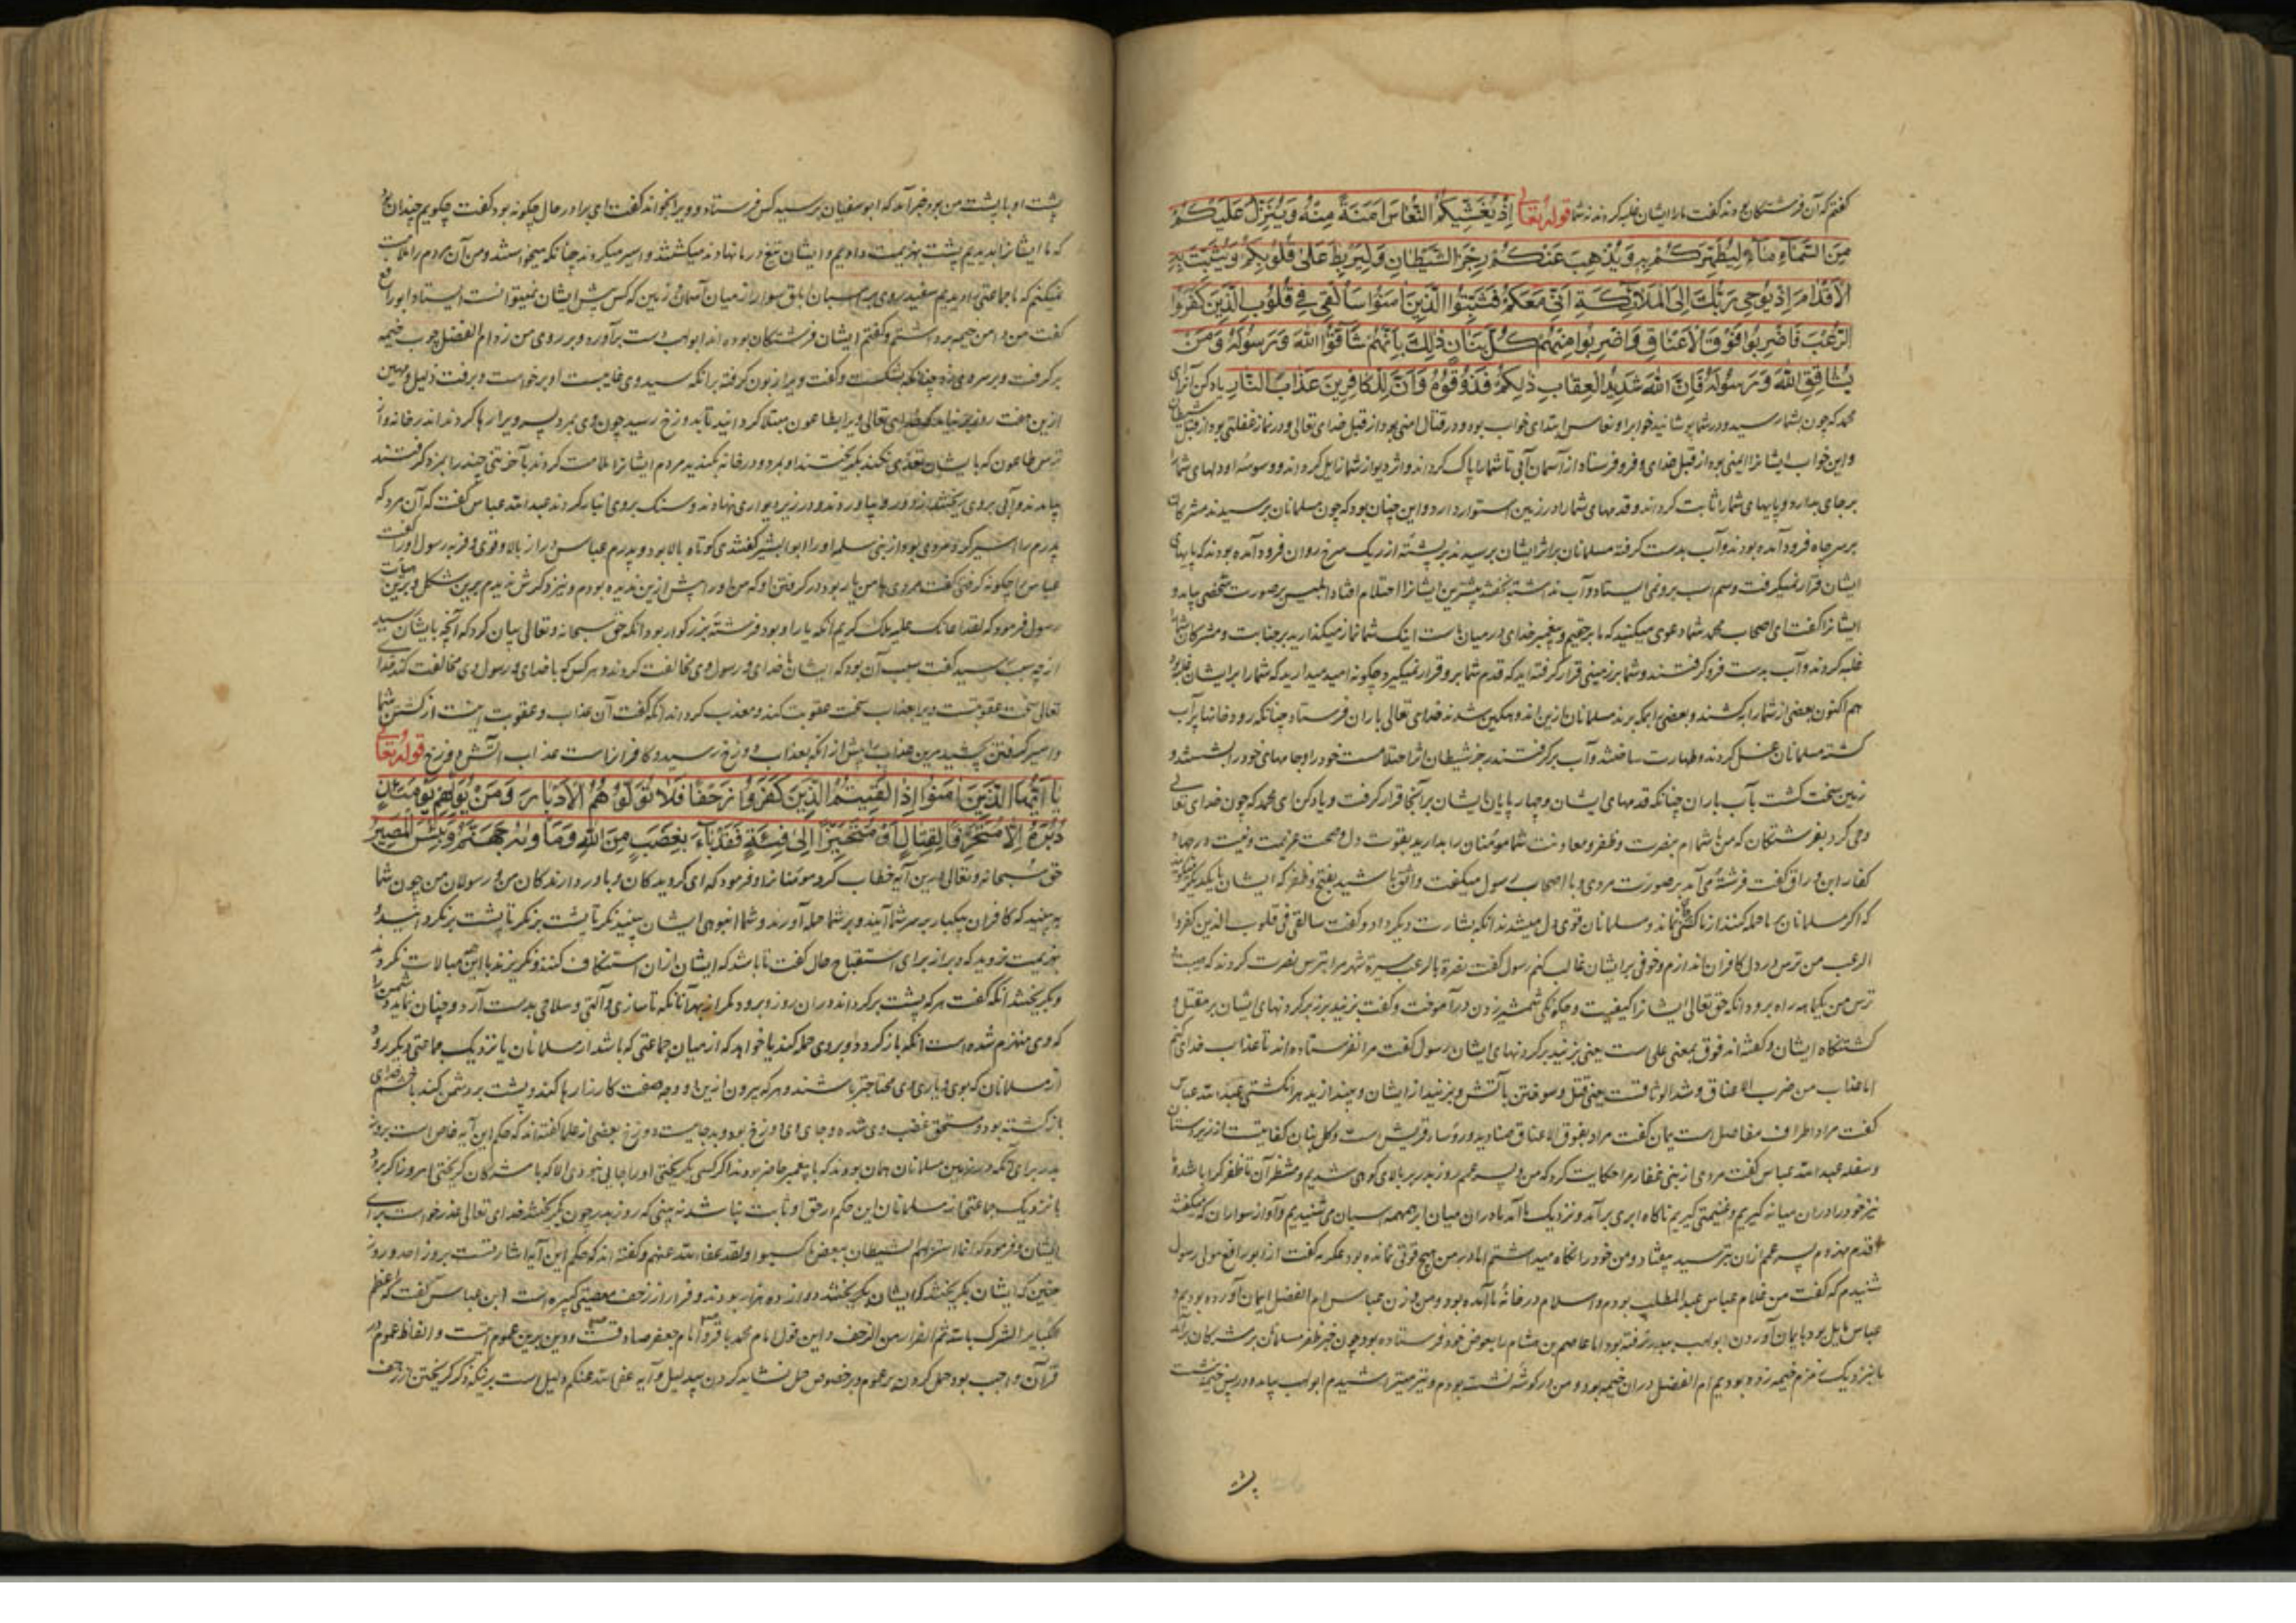 گفتم که آن فرشتگان بودند گفت ما را ایشان غلبه کردند نه شما قوله تعالی اِذْ یُغَشِّیکُمُ النُّعَاسَ اَمَنَةً مِنْهُ وَیُنَزِّلُ عَلَیْکُمْ
مِنَ السَّمَآءِ مَآءً لِیُطَهِّرَکُمْ بِهِ وَیُذْهِبَ عَنْکُمْ رِجْزَ الشَّیْطَانِ وَلِیَرْبِطَ عَلَیٰ قُلُوبِکُمْ وَیُثَبِّتَ بِهِ
الْاَقْدَامَ اِذْ یُوحِی رَبُّکَ اِلَی الْمَلَائِکَةِ اَنِّی مَعَکُمْ فَثَبِّتُوا الَّذِینَ اٰمَنُوا سَاُلْقِی فِی قُلُوبِ الَّذِینَ کَفَرُوا
الرُّعْبَ فَاضْرِبُوا فَوْقَ الْاَعْنَاقِ وَاضْرِبُوا مِنْهُمْ کُلَّ بَنَانٍ ذٰلِکَ بِاَنَّهُمْ شَاقُّوا اللّٰهَ وَرَسُولَهُ وَمَنْ
یُشَاقِقِ اللّٰهَ وَرَسُولَهُ فَاِنَّ اللّٰهَ شَدِیدُ الْعِقَابِ ذٰلِکُمْ فَذُوقُوهُ وَاَنَّ لِلْکَافِرِینَ عَذَابَ النَّارِ یاد کن آنرا ای
محمد که چون بشما رسید و در شما پوشانید خواب را و نعاس ابتدای خواب بود و در قتال امنی بود از قبل خدای تعالی و در نماز غفلتی بود از قبل شیطان
و این خواب ایشانرا ایمنی بود از قبل خدای و فرو فرستاد از آسمان آبی تا شما را پاک کرداند و اثر دیو از شما زایل کرداند و وسوسه او دلهای شما را
بر جای بدارد و پایهای شما را ثابت کرداند و قدمهای شما را در زمین استوار دارد و این چنان بود که چون مسلمانان برسیدند مشرکان
بر سر چاه فرود آمده بودند و آب بدست کرفته مسلمانان بر اثر ایشان برسیدند بر پشته از ریک سرخ روان فرود آمده بودند که پایهای
ایشان قرار نمیکرفت و سم اسب برو نمی ایستاد و آب نداشتند بخفتند بیشترین ایشانرا احتلام افتاد ابلیس بر صورت شخصی بیامد و
ایشانرا گفت ای اصحاب محمد شما دعوی میکنید که ما بر حقیم و پیغمبر خدای در میان ماست اینک شما نماز میکذارید بر جنابت و مشرکان شما را
غلبه کردند و آب بدست فرو کرفتند و شما بر زمینی قرار کرفته اید که قدم شما برو قرار نمیکیرد چکونه امید میدارید که شما را بر ایشان ظفر بود
هم اکنون بعضی از شما را بکشند و بعضی را ببرند مسلمانان ازین اندوهکین شدند خدای تعالی باران فرستاد چنانکه رودخانها پر آب
کشته مسلمانان غسل کردند و طهارت ساختند و آب برکرفتند رجز شیطان اثر احتلامست خود را و جامهای خود را بشستند و
زمین سخت کشت بآب باران چنانکه قدمهای ایشان و چهارپایان ایشان بر آنجا قرار کرفت و یاد کن ای محمد که چون خدای تعالی
وحی کرد بفرشتکان که من با شما ام بنصرت و ظفر و معاونت شما مومنان را بدارید بقوت دل و صحت عزیمت و نیت در جهاد
کفار ابن وراق گفت فرشته می آمد بر صورت مردی و با اصحاب رسول میکفت واثق باشید بفتح و ظفر که ایشان با یکدیکر میکویند
که اکر مسلمانان بر ما حمله کنند از ما کسی نماند و مسلمانان قوی دل میشدند آنکه بشارت دیکر داد و گفت سالقی فی قلوب الذین کفروا
الرعب من ترس در دل کافران اندازم و خوفی بر ایشان غالب کنم رسول گفت نصرت بالرعب مسیرة شهر مرا بترس نصرت کردند که هیبت و
ترس من یکماهه راه برود آنکه حق تعالی ایشانرا کیفیت و چکونکی شمشیر زدن درآموخت و گفت بزنید بر زبر کردنهای ایشان بر مقتل و
کشتنکاه ایشان و گفته اند فوق بمعنی علی است یعنی بزنید بر کردنهای ایشان رسول گفت مرا نفرستاده اند تا عذاب خدای کنم
اما عذاب من ضرب الاعناق و شد الوثاقست یعنی قتل و سوختن بآتش و بزنید از ایشان و بیندازید هر انکشتی عبد الله عباس
گفت مراد اطراف مفاصل است یمان گفت مراد بفوق الاعناق صنادید و رؤسا قریش است و کل بنان کنایتست از زیردستان
و سفله عبد الله عباس گفت مردی از بنی غفار مرا حکایت کرد که من و پسر عمم روز بدر بر بالای کوهی شدیم و منتظر آن تا ظفر کرا باشد و ما
نیز خود را در آن میانه گیریم و غنیمتی گیریم ناکاه ابری برآمد و نزدیک ما آمد ما در آن میان ابر همهمه اسپان می شنیدیم و آواز سواران که میگفتند
اقدم حیزوم پسر عمم از آن بترسید بیفتاد و من خود را نکاه میداشتم اما در من هیچ قوتی نمانده بود عکرمه گفت از ابو رافع مولی رسول
شنیدم که گفت من غلام عباس عبد المطلب بودم و اسلام در خانه ما آمده بود و من و زن عباس ام الفضل ایمان آورده بودیم و
عباس مایل بود بایمان آوردن ابو لهب ببدر نرفته بود اما عاصم بن هشام را بعوض خود فرستاده بود چون خبر ظفر مسلمانان بر مشرکان برآمد
ما بنزدیک زمزم خیمه زده بودیم ام الفضل در آن خیمه بود و من در کوشه نشسته بودم و تیر میتراشیدم ابو لهب بیامد و در پس خیمه بنشست
پشت
پشت او با پشت من بود خبر آمد که ابو سفیان برسید کس فرستاد و ویرا بخواند گفت ای برادر حال چکونه بود گفت چکویم چندان بود
که ما ایشانرا بدیدیم پشت بهزیمت دادیم و ایشان تیغ در ما نهادند میکشتند و اسیر میکردند چنانکه میخواستند و من آن مردم را ملامت
نمیکنم که ما جماعتی را دیدیم سفید روی بر اسبان ابلق سوار از میان آسمان و زمین که کس پیش ایشان نمیتوانست ایستاد ابو رافع
گفت من دامن خیمه برداشتم و گفتم ایشان فرشتکان بوده اند ابو لهب دست برآورد و بر روی من زد ام الفضل چوب خیمه
برگرفت و بر سر وی زد چنانکه بشکست و گفت ویرا زبون گرفته برانکه سید وی غایبست او برخواست و برفت ذلیل و مهین
ازین هفت روز بر نیامد که خدای تعالی ویرا بطاعون مبتلا کردانید تا بدوزخ رسید چون وی بمرد پسر ویرا رها کردند اندر خانه و از
ترس طاعون که بایشان تعدی نکند بکریختند او بمرد و در خانه بکندید مردم ایشانرا ملامت کردند بآخر تنی چند را بمزد گرفتند
بیامدند و آبی بروی ریختند از دور و بیاوردند و در زیر دیواری نهادند و سنک بروی انبار کردند عبد الله عباس گفت که آن مرد که
پدرم را اسیر کرد مردی بود از بنی سلمه او را ابو الیسر گفتندی کوتاه بالا بود و پدرم عباس دراز بالا و قوی و فربه رسول او را گفت
عباس را چکونه گرفتی گفت مردی با من یار بود در گرفتن او که من او را پیش ازین ندیده بودم و نیز دگرش ندیدم برین شکل و برین هیات
رسول فرمود که لقد اعانک علیه ملک کریم آنکه یار او بود فرشته بزرگوار بود آنکه حق سبحانه و تعالی بیان کرد که آنچه بایشان رسید
از چه سبب رسید گفت سبب آن بود که ایشان با خدای و رسول وی مخالفت کردند و هر کس که با خدای و رسول وی مخالفت کند خدا
تعالی سخت عقوبتست ویرا بعذاب سخت عقوبت کند و معذب کرداند آنکه گفت آن عذاب و عقوبت اینست از کشتن شما
و اسیر گرفتن بچشید مرین عذاب را پیش از آنکه بعذاب دوزخ رسید و کافرانراست عذاب آتش دوزخ قوله تعالی
یَا اَیُّهَا الَّذِینَ اٰمَنُوا اِذَا لَقِیتُمُ الَّذِینَ کَفَرُوا زَحْفًا فَلَا تُوَلُّوهُمُ الْاَدْبَارَ وَمَنْ یُوَلِّهِمْ یَوْمَئِذٍ
دُبُرَهُ اِلَّا مُتَحَرِّفًا لِقِتَالٍ اَوْ مُتَحَیِّزًا اِلَیٰ فِئَةٍ فَقَدْ بَآءَ بِغَضَبٍ مِنَ اللّٰهِ وَمَاْوٰیهُ جَهَنَّمُ وَبِئْسَ الْمَصِیرُ
حق سبحانه و تعالی درین آیه خطاب کرد مومنانرا و فرمود که ای گرویدکان و باور دارندکان من و رسولان من چون شما
به بینید که کافران بیکبار بر سر شما آیند و بر شما حمله آورند و شما انبوهی ایشان ببینید نکر تا پشت برنکردانید و
بهزیمت نروید که دبر از برای استقباح حال گفت تا باشد که ایشان از آن استنکاف کنند و نگریزند با این همه مبالات نکردند
و بگریختند آنکه گفت هر که پشت برکرداند در آن روز و برود مگر از بهر آنانکه تا سازی و آلتی و سلاحی بدست آرد و چنان نماید دشمن را
که وی منهزم شده است آنکه باز گردد و بروی حمله کند یا خواهد که از میان جماعتی که باشد از مسلمانان یا نزدیک جماعتی دیگر رود
از مسلمانان که بوی و یاری وی محتاجتر باشند و هر که بیرون ازین دو وجه صفت کارزار رها کند و پشت بر دشمن کند با خشم خدای
باز گشته بود و مستحق غضب وی شده و جای وی دوزخ بود و بد جاییست دوزخ بعضی از علما گفته اند که حکم این آیه خاص است بروز
بدر برای آنکه در زمین مسلمانان همان بودند که با پیغمبر حاضر بودند اگر کسی بگریختی او را جایی نبودی الا که با مشرکان گریختی امروز اگر برود
با نزدیک جماعتی از مسلمانان این حکم در حق او ثابت نباشد نه بینی که روز بدر چون بگریختند خدای تعالی عذر خواست برای
ایشان و فرمود که انما استزلهم الشیطان ببعض ما کسبوا و لقد عفا الله عنهم و گفته اند که حکم این آیه اشارتست بروز احد و روز
حنین که ایشان بگریختند که ایشان بگریختند دوازده هزار بودند و فرار از زحف معصیتی کبیره است ابن عباس گفت که اعظم
الکبایر الشرک بالله ثم الفرار من الزحف و این قول امام محمد باقر و امام جعفر صادقست و دین برین عموم است و الفاظ عموم در
قرآن واجب بود حمل کردن بر عموم و بر خصوص حمل نشاید کردن بی دلیل و آیه عفی الله عنکم دلیل است بر آنکه گریختن از زحف